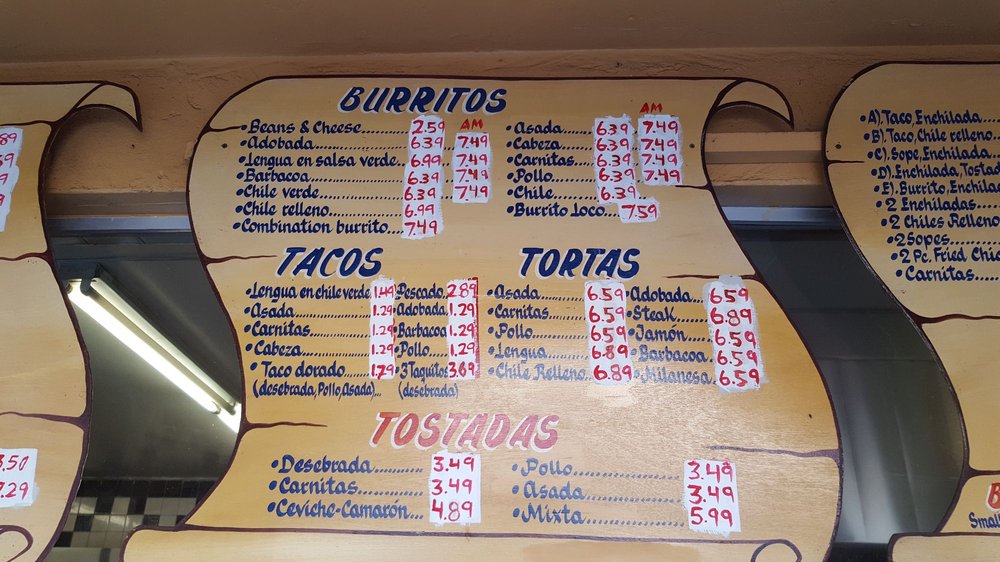 BURRITOS
AM
Beans & Cheese 2.59
Adobada 6.39 7.49
Lengua en salsa verde 6.99 7.49
Barbacoa 6.39 7.49
Chile verde 6.39 7.49
Chile relleno 6.99
Combination burrito 7.49
AM
Asada 6.39 7.49
Cabeza 6.39 7.49
Carnitas 6.39 7.49
Pollo 6.39 7.49
Chile 6.39
Burrito Loco 7.59
TACOS
Lengua en chile verde 1.49
Asada 1.29
Carnitas 1.29
Cabeza 1.29
Taco dorado 1.79
(desebrada, Pollo, Asada)
Pescado 2.89
Adobada 1.29
Barbacoa 1.29
Pollo 1.29
3 Taquitos 3.69
(desebrada)
TORTAS
Asada 6.59
Carnitas 6.59
Pollo 6.59
Lengua 6.89
Chile Relleno 6.89
Adobada 6.59
Steak 6.89
Jamón 6.59
Barbacoa 6.59
Milanesa 6.59
TOSTADAS
Desebrada 3.49
Carnitas 3.49
Ceviche-Camarón 4.89
Pollo 3.49
Asada 3.49
Mixta 5.99
A). Taco, Enchilada
B). Taco, Chile relleno
C). Sope, Enchilada
D). Enchilada,
E). Burrito,
2 Enchiladas
2 Chiles Relleno
2 Sopes
2 Pc. Fried
Carnitas
Small